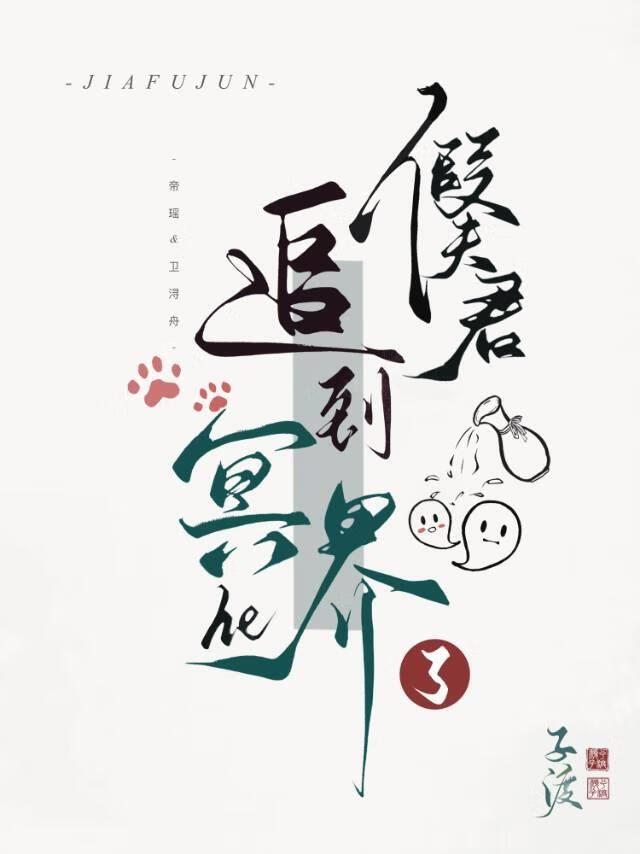 -JIAFUJUN-
-帝瑶&卫浔舟-
假夫君
追到
冥界
he
了
子渡